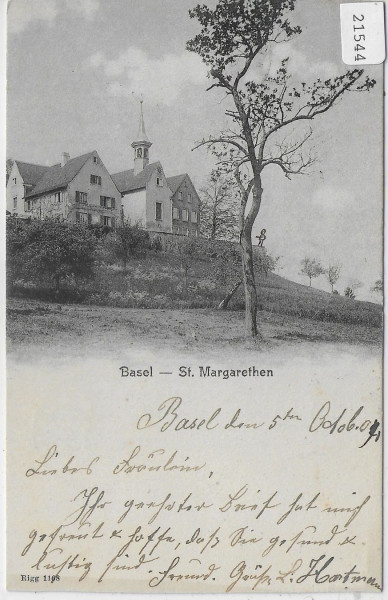 21544
Basel — St. Margarethen
Basel den 5ten Octob. 04
Liebes Fräulein,
Ihr geehrter Brief hat mich
gefreut & hoffe, daß Sie gesund &
lustig sind. Freund. Grüße L. Hartmann
Rigg 1168